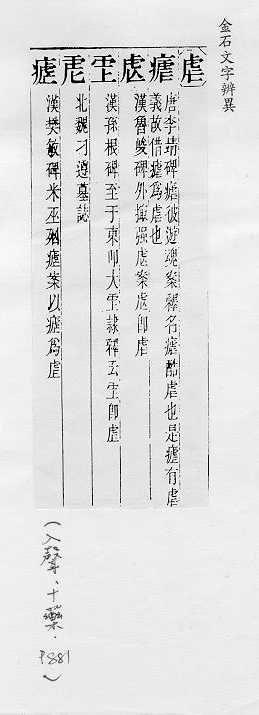 金石文字辨異
虐
瘧
唐李靖碑瘧彼遊魂案釋名瘧酷虐也是瘧有虐
義故借瘧為虐也
漢魯峻碑外撮强虐案虐即虐
漢孫根碑至于東叩大 隸釋云 即虐
北魏刁遵墓誌
瘧
漢樊敏碑米巫 瘧案以瘧為虐
(入聲、十藥．P881)